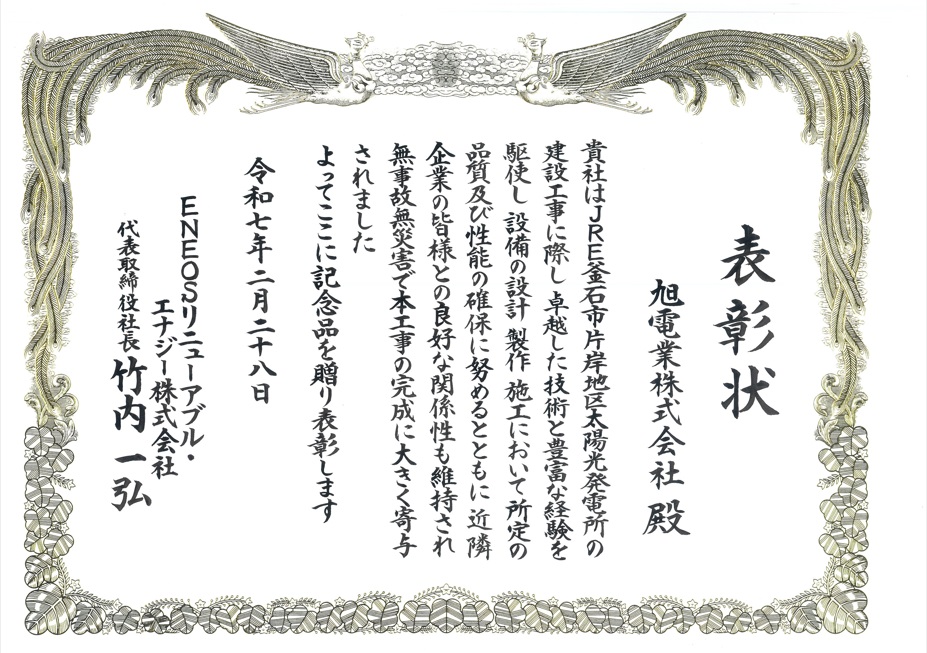 表彰状
旭電業株式会社 殿
貴社はJRE釜石市片岸地区太陽光発電所の
建設工事に際し 卓越した技術と豊富な経験を
駆使し 設備の設計 製作 施工において所定の
品質及び性能の確保に努めるとともに 近隣
企業の皆様との良好な関係性も維持され
無事故無災害で本工事の完成に大きく寄与
されました
よってここに記念品を贈り表彰します
令和七年二月二十八日
ENEOSリニューアブル・
エナジー株式会社
代表取締役社長 竹内一弘